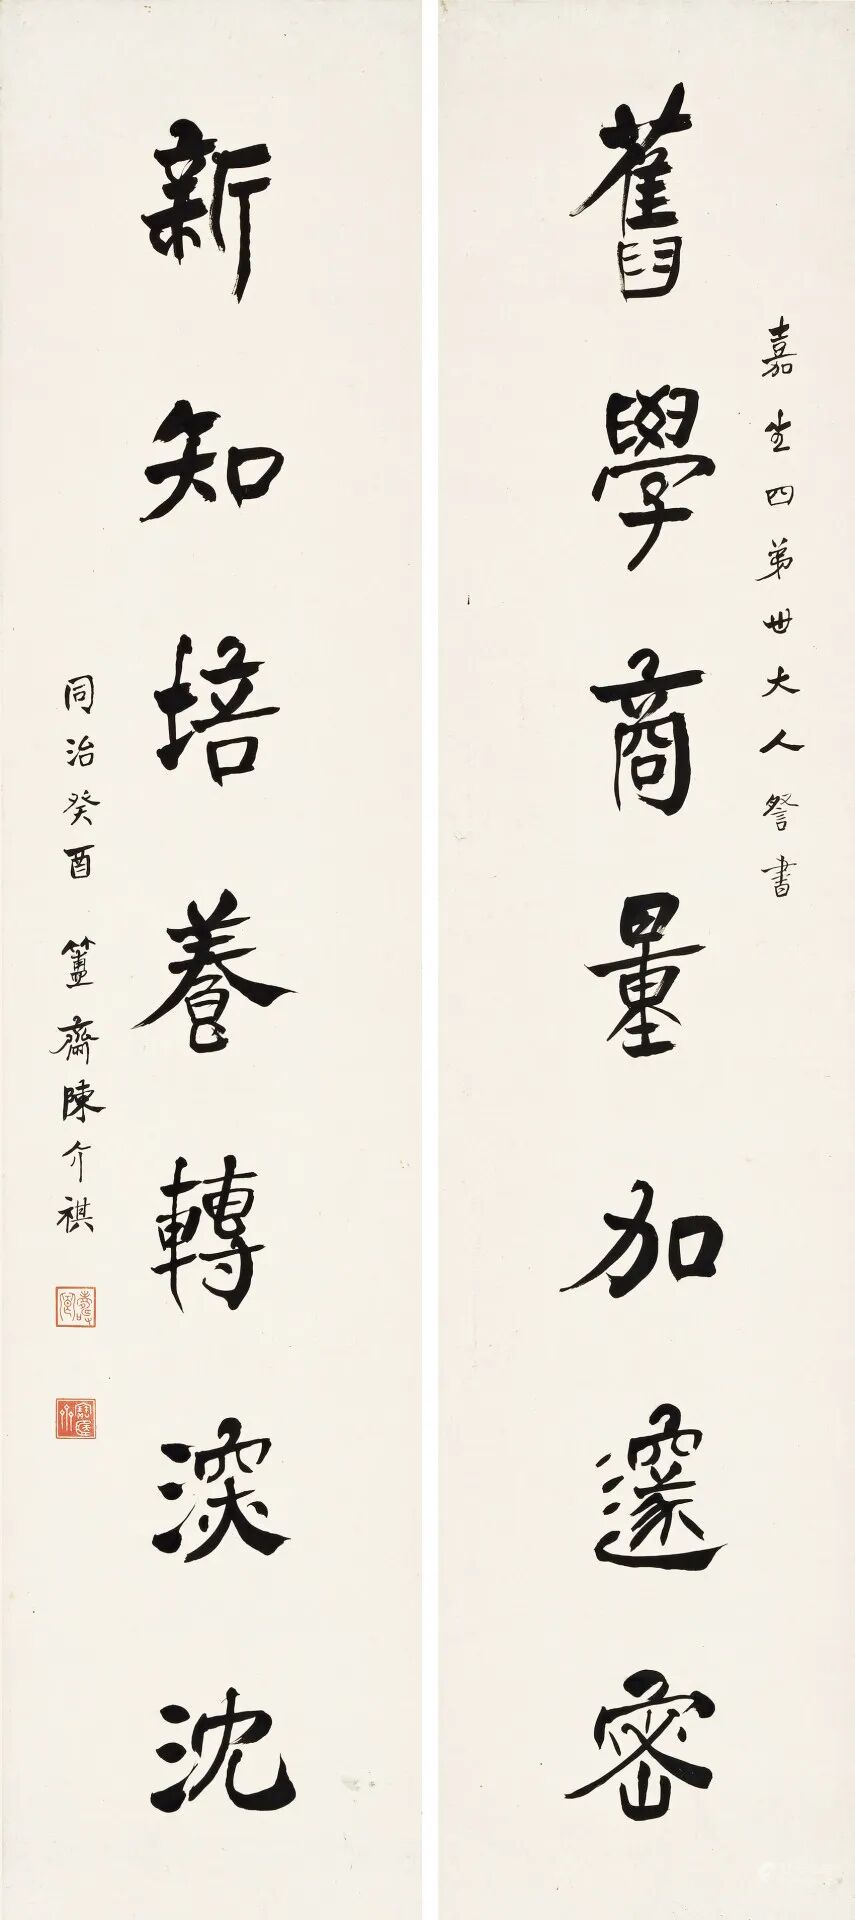 嘉生四弟世大人詧書
舊學商量加邃密
新知培養轉深沈
同治癸酉 簠齋陳介祺